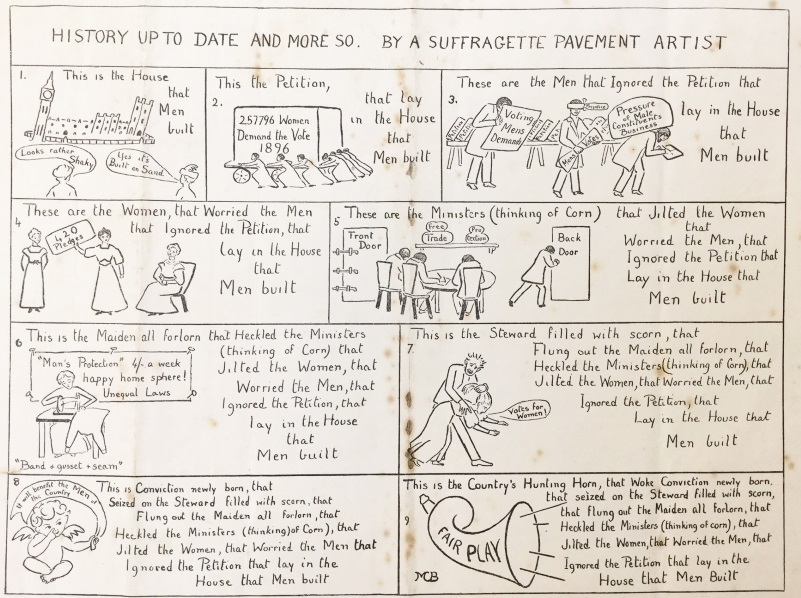 HISTORY UP TO DATE AND MORE SO. BY A SUFFRAGETTE PAVEMENT ARTIST
1. This is the House
that
Men
built
Looks rather
Shaky
Yes it's
Built on Sand
This the Petition,
2.
that lay
in the House
that
Men built
257796 Women
Demand the Vote
1896
These are the Men that Ignored the Petition that
3.
lay in the House
that
Men built
Voting
Mens
Demands
Mens
Votes
Pressure
of Male
Constituents
Business
4
These are the Women, that Worried the Men
that Ignored the Petition, that
lay in the House
that
Men built
420
Pledges
5
These are the Ministers (thinking of Corn) that Jilted the Women
that
Worried the Men, that
Ignored the Petition that
Lay in the House that
Men built
Front
Door
Free
Trade
Pro
tection
Back
Door
6
This is the Maiden all forlorn that Heckled the Ministers
(thinking of Corn) that
Jilted the Women, that
Worried the Men, that
Ignored the Petition, that
lay in the House
that
Men built
"Man's Protection" 4/- a week
happy home sphere!
Unequal Laws
"Band + gusset + seam"
This is the Steward filled with scorn, that
7.
Flung out the Maiden all forlorn, that
Heckled the Ministers (thinking of Corn), that
Jilted the Women, that Worried the Men, that
Ignored the Petition, that
Lay in the House that
Men built
Votes for
Women!
8
This is Conviction newly born, that
Seized on the Steward filled with scorn, that
Flung out the Maiden all forlorn, that
Heckled the Ministers (thinking) of Corn), that
Jilted the Women, that Worried the Men that
Ignored the Petition that lay in the
House that Men built
It will benefit the Men of
the Country
This is the Country's Hunting Horn, that Woke Conviction newly born.
that seized on the Steward filled with scorn,
9
that flung out the Maiden all forlorn, that
Heckled the Ministers (thinking of corn), that
Jilted the Women, that Worried the Men, that
Ignored the Petition that lay in the
House that Men Built
FAIR PLAY
MCB